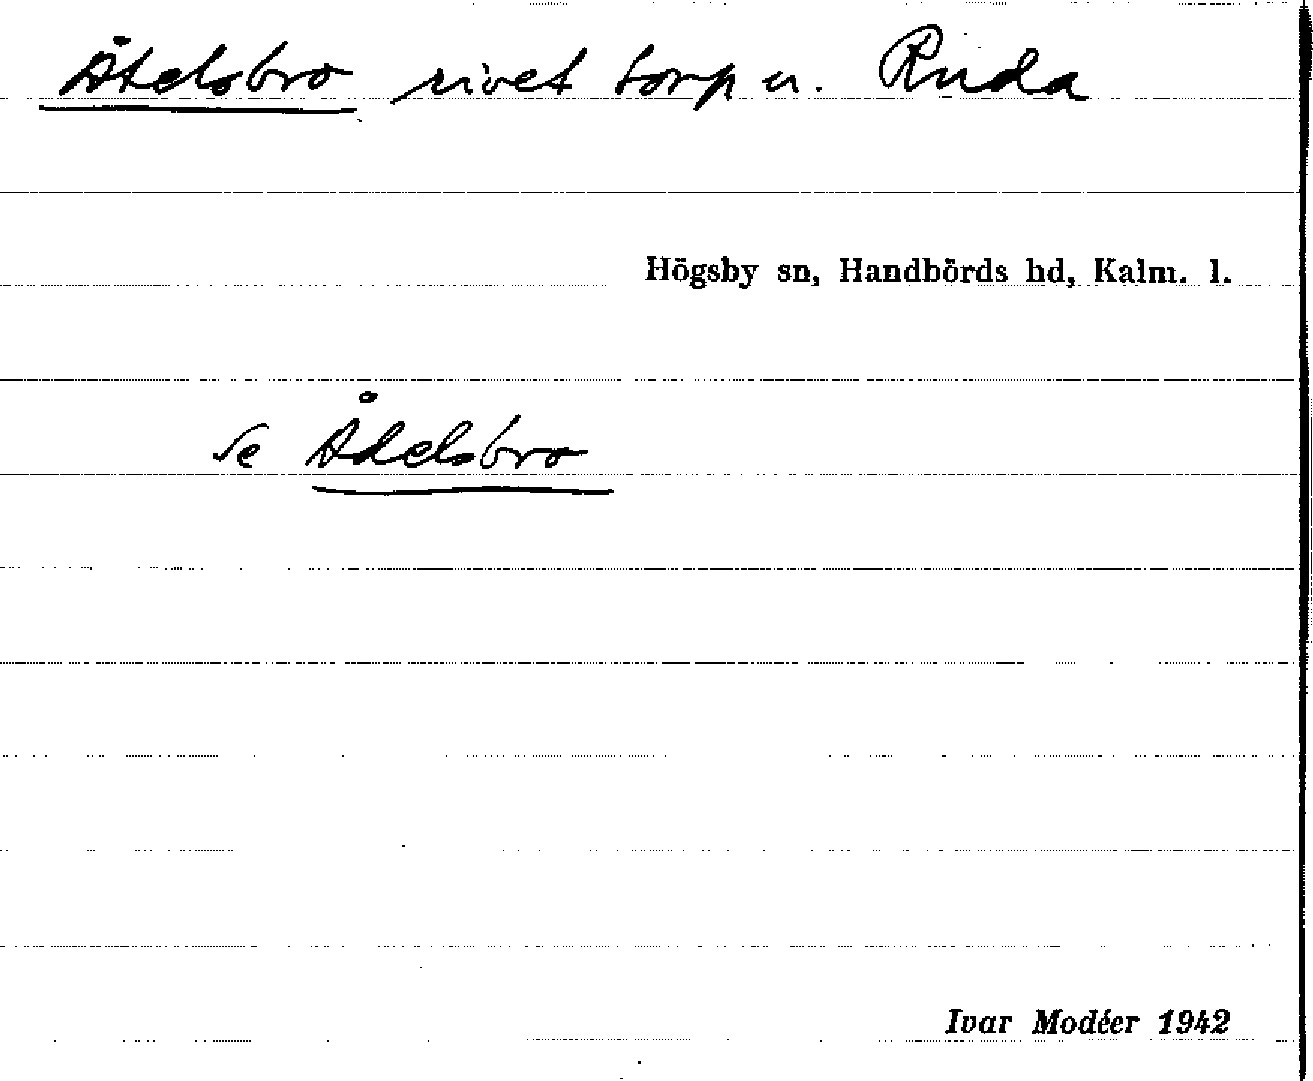 Åtelsbro rivet torp u. Ruda
Högsby sn, Handbörds hd, Kalm. l.
se Ådelsbro
Ivar Modéer 1942